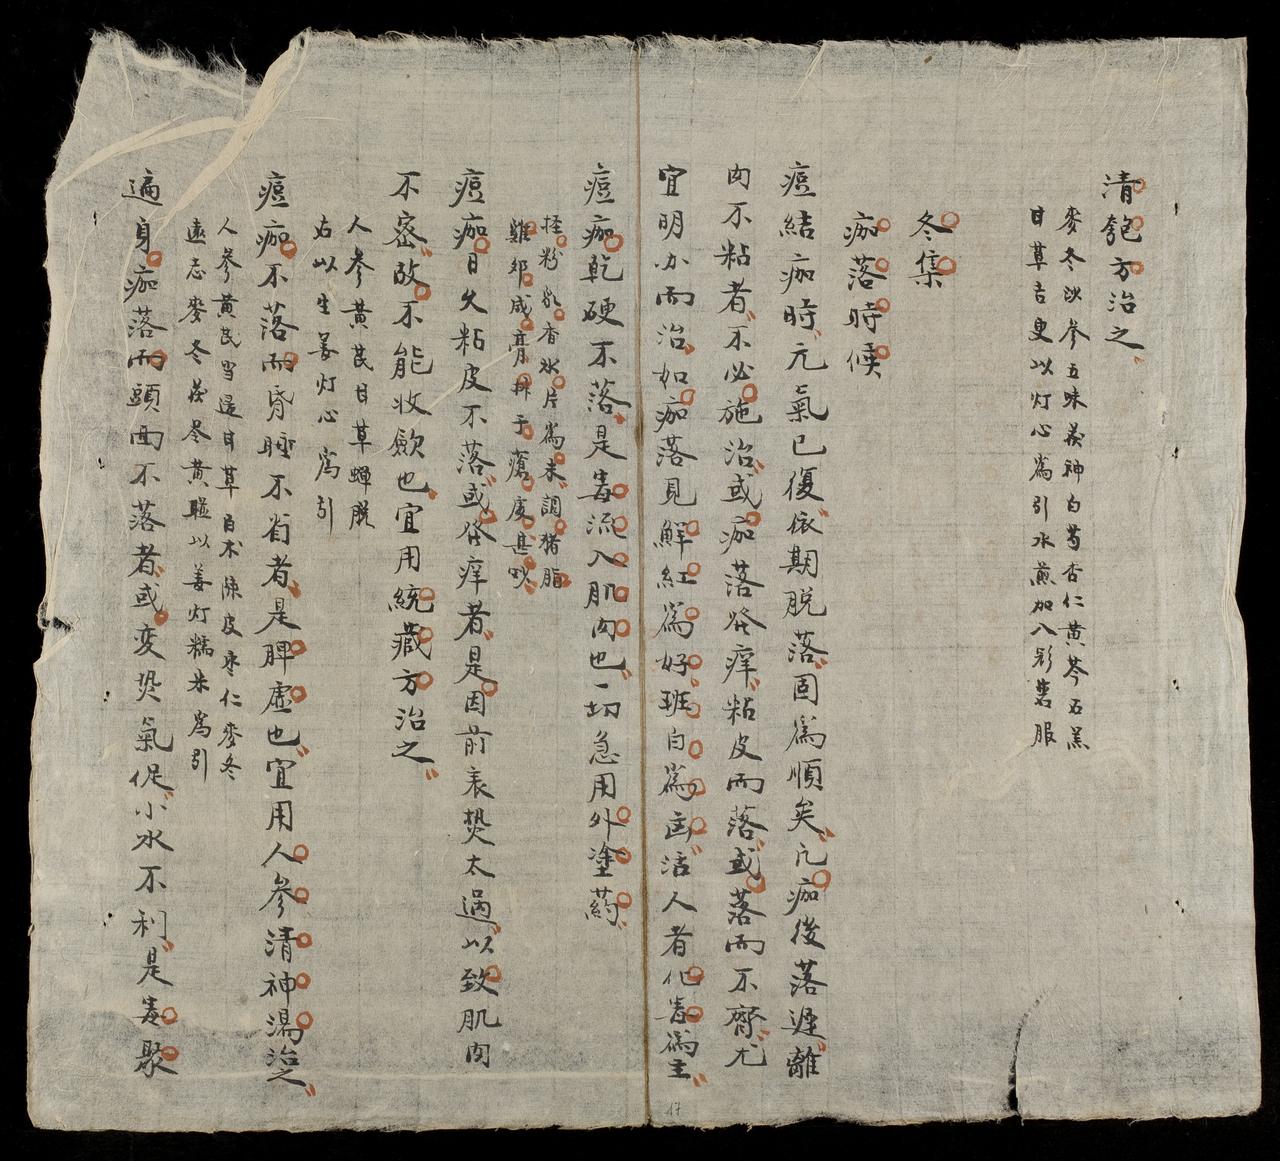 清㿺方治之
麥冬沙參五味茯神白芍杏仁黄芩石羔
甘草吉更以灯心為引水煎加入彩蒼服
冬集
痂落時候
痘結痂時元氣已復依期脱落固為順矣凢痂後落遲離
肉不粘者不必施治或痂落發痒粘皮而落或落而不齊尤
宜明办而治如痂落見鮮紅為好斑白為凶活人者化毒為主
痘痂乾硬不落是毒流入肌肉也一切急用外塗葯
輕粉乳香氷片為末調猪脂
雞卵成膏抹于瘡处甚妙
痘痂日久粘皮不落或發痒者是因前表熱太過以致肌肉
不密故不能收歛也宜用統藏方治之
人參黄芪甘草蟬脱
右以生姜灯心為引
痘痂不落而昏睡不省者是脾虚也宜用人參清神湯治之
人參黄芪当归甘草白术陳皮枣仁麥冬
遠志麥冬茯苓黄連以姜灯糯米為引
遍身痂落而頭面不落者或変熱氣促小水不利是毒聚